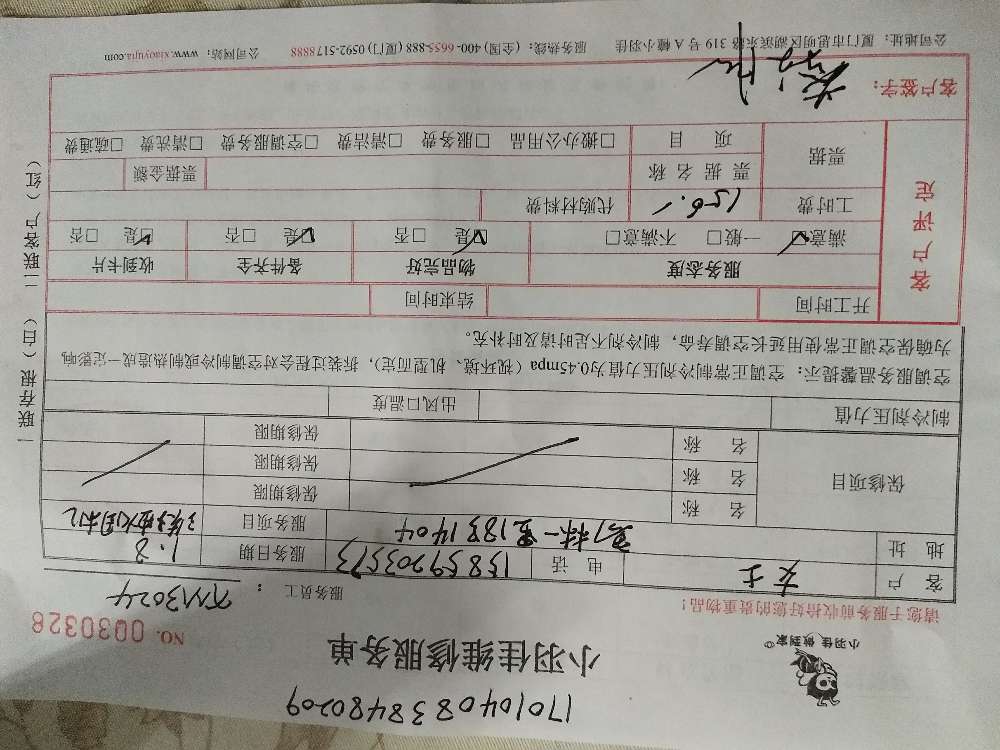 17010408384480209
小羽佳 做到家®
小羽佳维修服务单
NO. 0030326
请您于服务前收拾好您的贵重物品！
服务员工：
TM3024
客户 女士 电话 15859203573 服务日期 1.8
地址 一里183 1404 服务项目
保修项目 名称 保修期限
名称 保修期限
名称 保修期限
制冷剂压力值 出风口温度
空调服务温馨提示：空调正常制冷剂压力值为0.45mpa（视环境、机型而定），拆装过程会对空调制冷或制热造成一定影响
为确保空调正常使用延长空调寿命，制冷剂不足时请及时补充。
客户评定
开工时间 结束时间
服务态度 物品完好 备件齐全 收到卡片
☑满意 一般□ 不满意□ ☑是 □否 ☑是 □否 ☑是 □否
工时费 150.- 代购材料费
票据 票据名称 票据金额
项目 □搬办公用品 □服务费 □清洁费 □空调服务费 □清洗费 □疏通费
客户签字：
一联存根（白） 二联客户（红）
公司地址：厦门市思明区湖滨东路319号A幢小羽佳 服务热线：（全国）400-6655-888（厦门）0592-5178888 公司网站：www.xiaoyujia.com